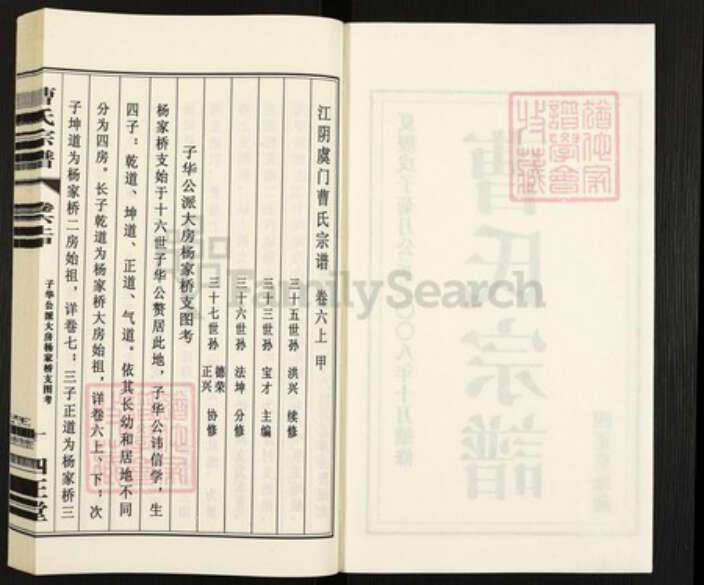 江阴虞门曹氏宗谱 卷六上 甲
三十五世孙 洪兴 续修
三十三世孙 宝才 主编
三十六世孙 法坤 分修
三十七世孙 德荣 正兴 协修
子华公派大房杨家桥支图考
杨家桥支始于十六世子华公赘居此地，子华公讳信学，生
四子：乾道、坤道、正道、气道。依其长幼和居地不同
分为四房。长子乾道为杨家桥大房始祖，详卷六上、下；次
子坤道为杨家桥二房始祖，详卷七；三子正道为杨家桥三
曹氏宗谱
卷六上
子华公派大房杨家桥支图考
一
FamilySearch
曹氏宗譜